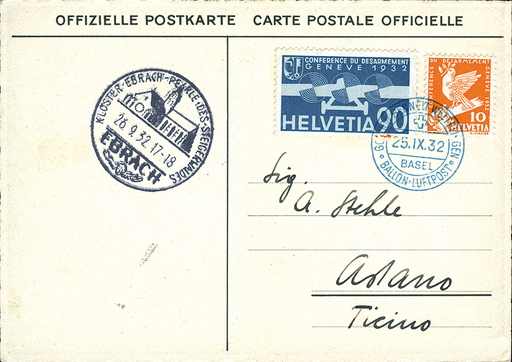 OFFIZIELLE POSTKARTE CARTE POSTALE OFFICIELLE
KLOSTER-EBRACH-PERLE-DES-STEIGERWALDES
26.9.32.17-18
EBRACH
CONFERENCE DU DESARMEMENT
GENEVE 1932
HELVETIA 90
CONFERENCE DU DESARMEMENT
GENEVE 1932
10
HELVETIA
25.IX.32
BASEL
BALLON-LUFTPOST
Sig.
A. Stehle
Astano
Ticino